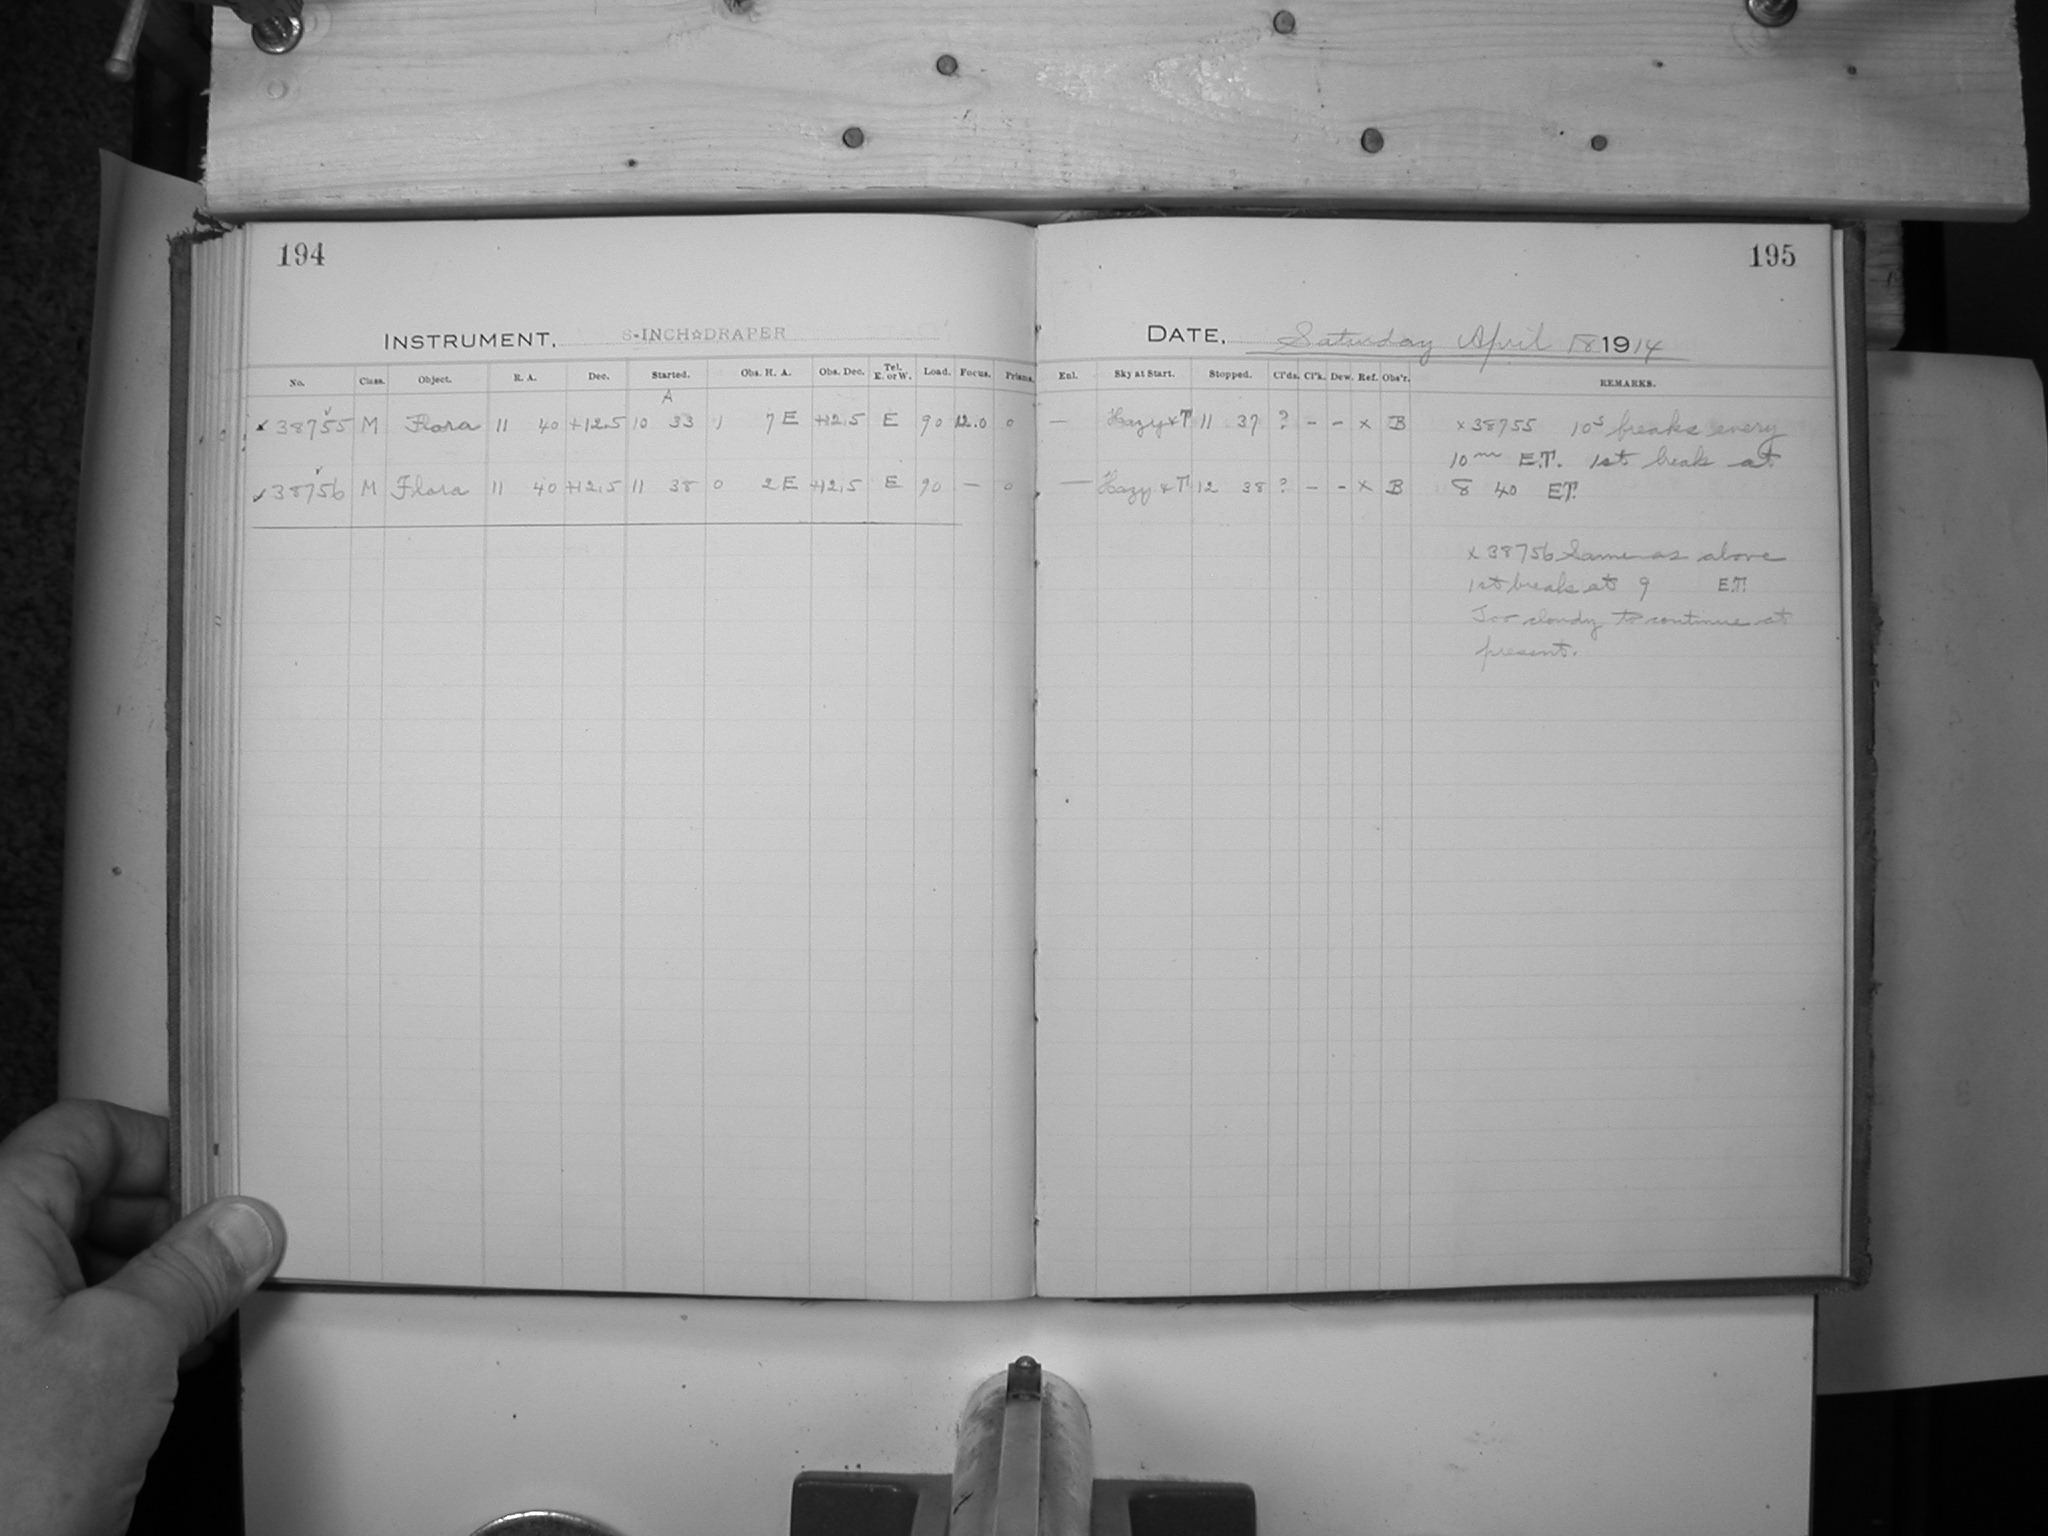 194
195
INSTRUMENT, 8-INCH☆DRAPER
DATE, Saturday April 18 1914
No. Class. Object. R. A. Dec. Started. Obs. H. A. Obs. Dec. Tel. E. or W. Load. Focus. Prisms. Enl. Sky at Start. Stopped. Cl'ds. Cl'k. Dew. Ref. Obs'r. REMARKS.
A
x 38755 M Flora 11 40 +12.5 10 33 1 7 E +12.5 E 90 12.0 0 — Hazy & T 11 37 ? - - x B x 38755 10s breaks every
10m E.T. 1st break at
✓ 38756 M Flora 11 40 +12.5 11 38 0 2 E +12.5 E 90 — 0 — Hazy & T 12 38 ? - - x B 8 40 E.T.
x 38756 Same as above
1st break at 9 E.T.
Too cloudy to continue at
present.